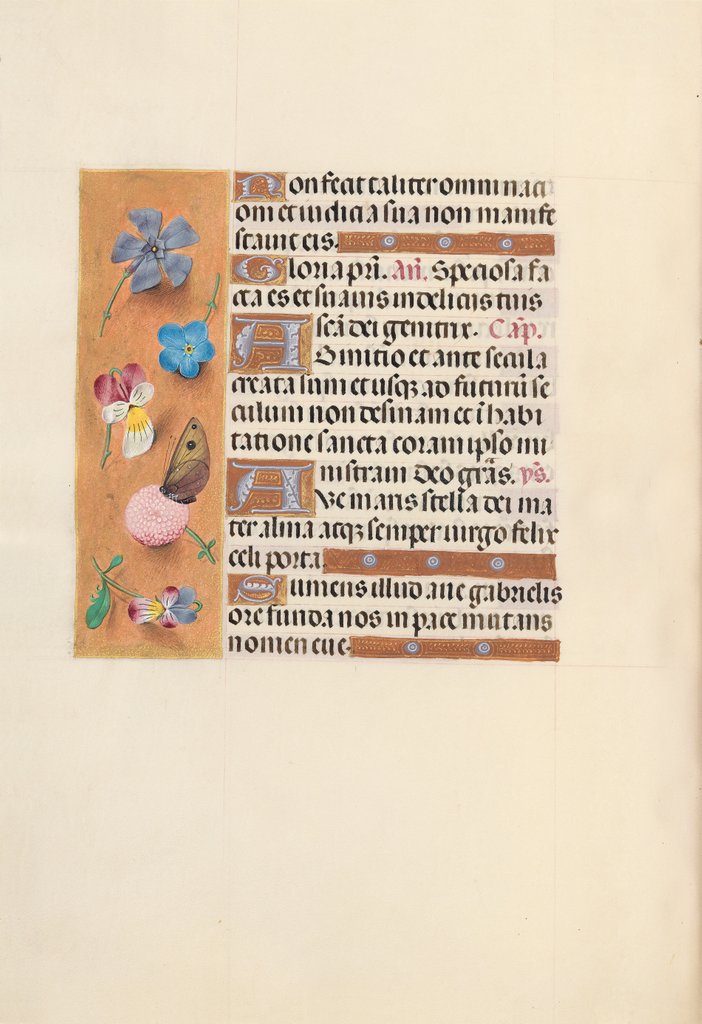 Non fecit taliter omni naci
oni et iudicia sua non manife
stauit eis.
Gloria pr̄i. An̄. Speciosa fa
cta es et suauis in delicijs tuis
sc̄a dei genitrix. Cap̄.
AB initio et ante secula
creata sum et usqȝ ad futurū se
culum non desinam et ī habi
tatione sancta coram ipso mi
nistraui Deo grās. ym̄s.
AVe maris stella dei ma
ter alma atqȝ semper uirgo felix
celi porta.
Sumens illud aue gabrielis
ore funda nos in pace mutans
nomen eue.